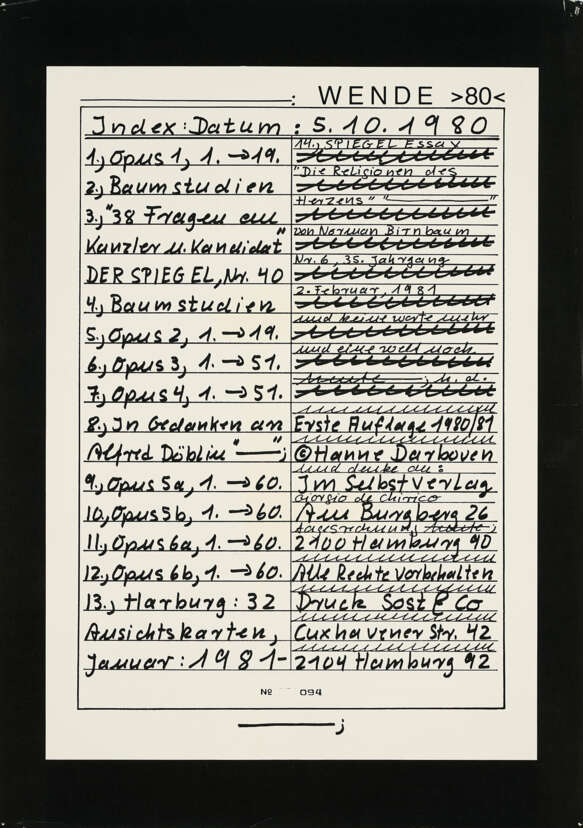 : WENDE >80<
Index: Datum: 5. 10. 1980
1., Opus 1, 1. → 19.
2., Baumstudien
3., "38 Fragen an
Kanzler u. Kandidat"
DER SPIEGEL, Nr. 40
4., Baumstudien
5., Opus 2, 1. → 19.
6., Opus 3, 1. → 51.
7., Opus 4, 1. → 51.
8., In Gedanken an
Alfred Döblin "—";
9., Opus 5a, 1. → 60.
10., Opus 5b, 1. → 60.
11., Opus 6a, 1. → 60.
12., Opus 6b, 1. → 60.
13., Harburg: 32
Ansichtskarten,
Januar: 1981-
14., SPIEGEL Essay
"Die Religionen des
Herzens" "—"
von Norman Birnbaum
Nr. 6, 35. Jahrgang
2. Februar, 1981
und keine worte mehr
und eine welt noch
heute —; u. a.
Erste Auflage 1980/81
© Hanne Darboven
und denke an:
Im Selbstverlag
Giorgio de Chirico
Am Burgberg 26
tagesrechnung, heute;
2100 Hamburg 90
Alle Rechte vorbehalten
Druck Sost & Co
Cuxhavener Str. 42
2104 Hamburg 92
№ 094
—;